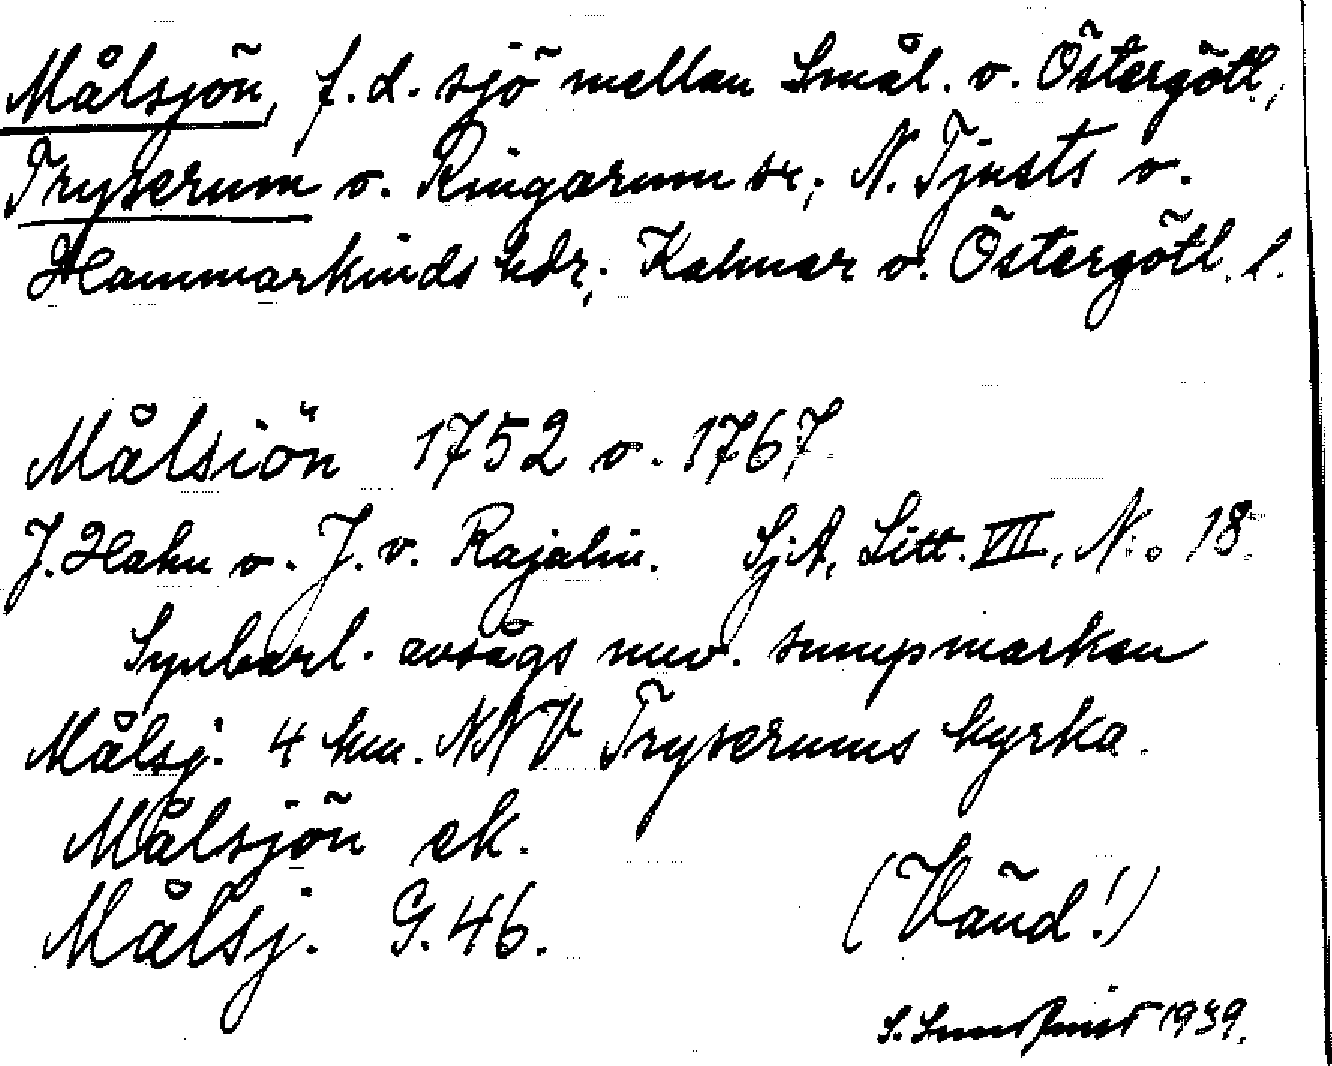 Målsjön, f.d. sjö mellan Smål. o. Östergötl.,
Tryserum o. Ringarum sr; N. Tjusts o.
Hammarkinds hdr; Kalmar o. Östergötl. l.
Målsiön 1752 o. 1767
J. Hahn o. J. v. Rajalin. SjA, Litt. VII, No 18.
Synbarl. avsågs nuv. sumpmarken
Målsj. 4 km. NNV Tryserums kyrka.
Målsjön ek.
Målsj. G. 46.
(Vänd!)
S. 1939.